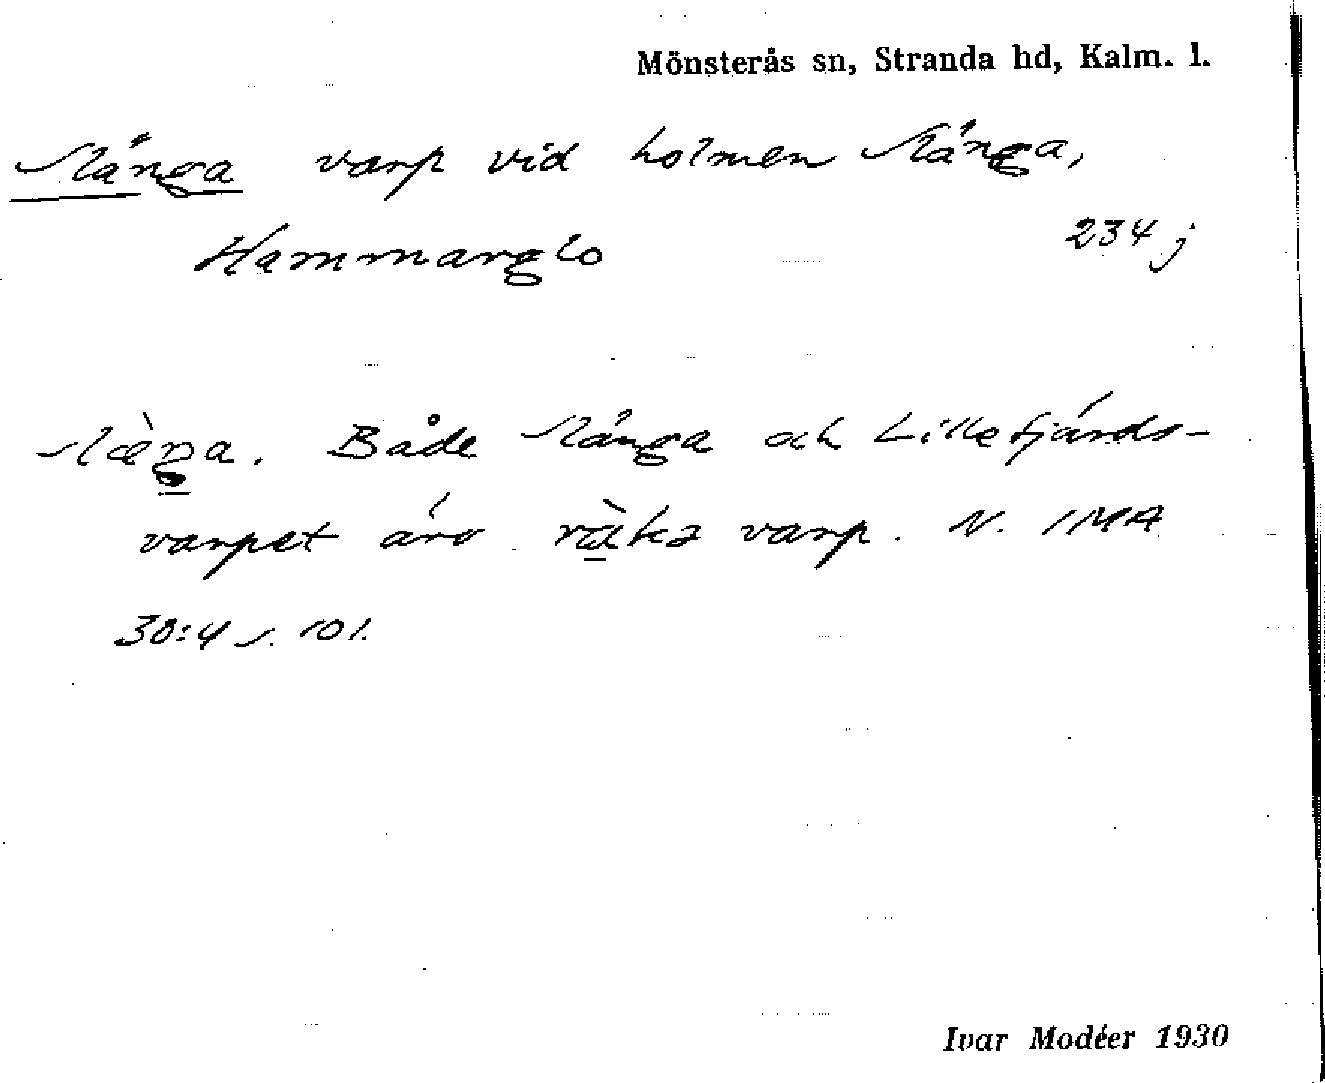 Mönsterås sn, Stranda hd, Kalm. l.
Slänga varp vid holmen Slänga,
Hammarglo 234 j
slæ̀ŋa. Både Slänga och Lillefjärds-
varpet äro varp. N. IMA
30:4 s. 101.
Ivar Modéer 1930